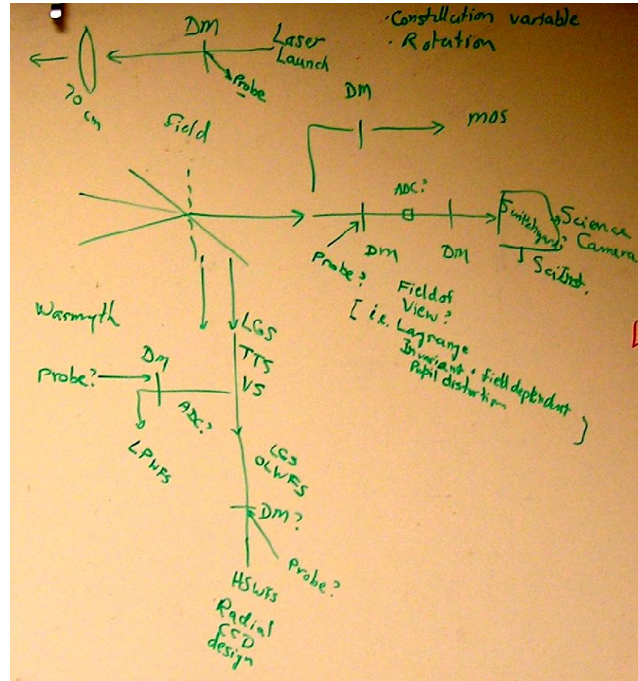 · Constellation variable
· Rotation
DM
Laser
Launch
Probe
70 cm
field
DM
MOS
ADC?
Switchyard?
Science
Camera
Sci Inst.
Probe?
DM
DM
Field of
View?
[ i.e. Lagrange
Invariant + field dependent
Pupil distortion ]
LGS
TTS
VS
DM
Probe?
ADC?
LPWFS
LGS
OLWFS
DM?
Probe?
HSWFS
Radial
CCD
design